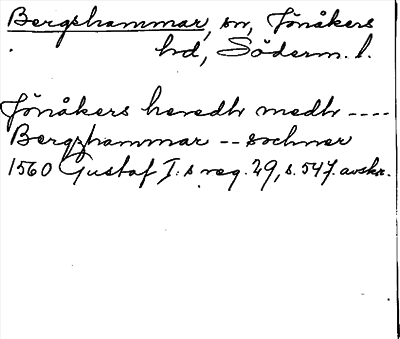 Bergshammar, sn, Jönåkers
hd, Söderm. l.
Jönåkers heredh medh ----
Bergzhammar -- sochner
1560 Gustaf I:s reg. 29, s. 547. avskr.